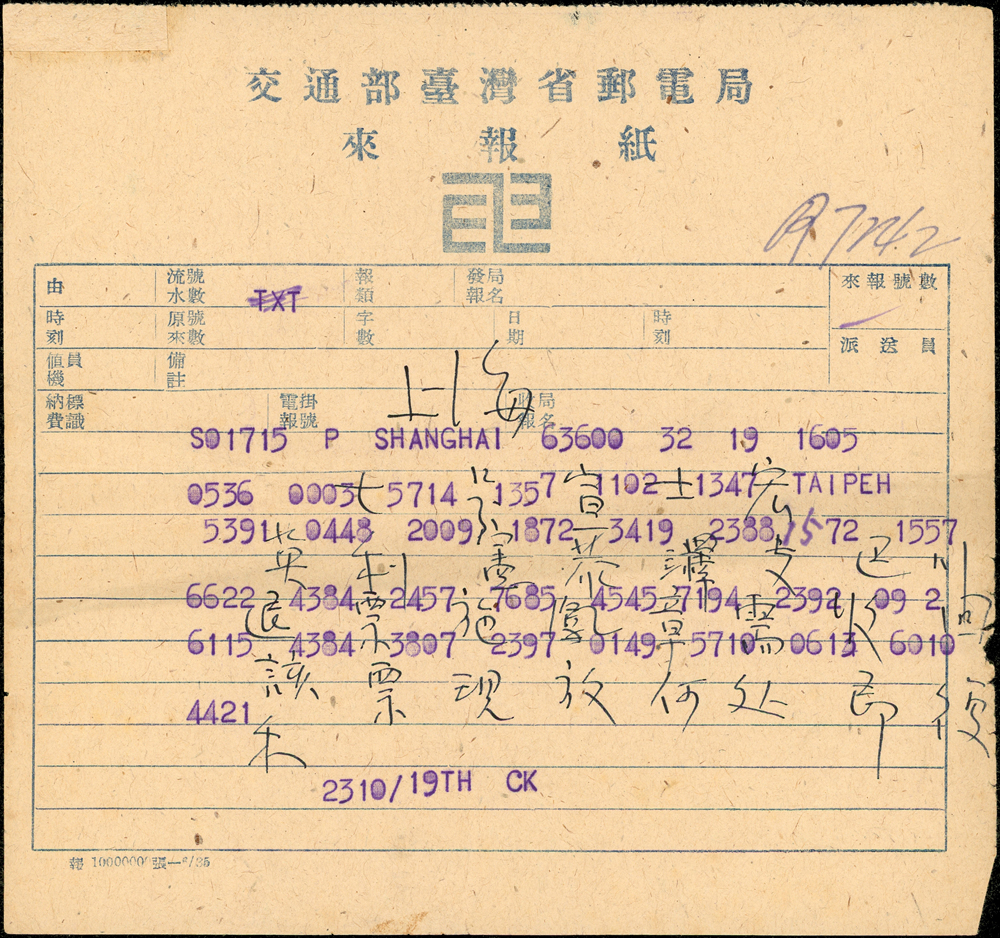 交通部臺灣省郵電局
來報紙
A7242
由 流水號數 TXT 報類 發報局名 來報號數
時刻 原來號數 字數 日期 時刻 派送員
值機員 備註
上海
納費標識 電報掛號 收報局名
S01715 P SHANGHAI 63600 32 19 1605
0536 0003 5714 1357 1102 1347 TAIPEH
七 宣 士 宏
5391 0448 2009 1872 3419 2388 1572 1557
英 利 憲 荒 澤 支
6622 4384 2457 7685 4545 7194 2392 09 2
退 票 施 鳳 章 需 收 回
6115 4384 3807 2397 0149 5710 0613 6010
該 票 現 放 何 处 即 復
4421
禾
2310/19TH CK